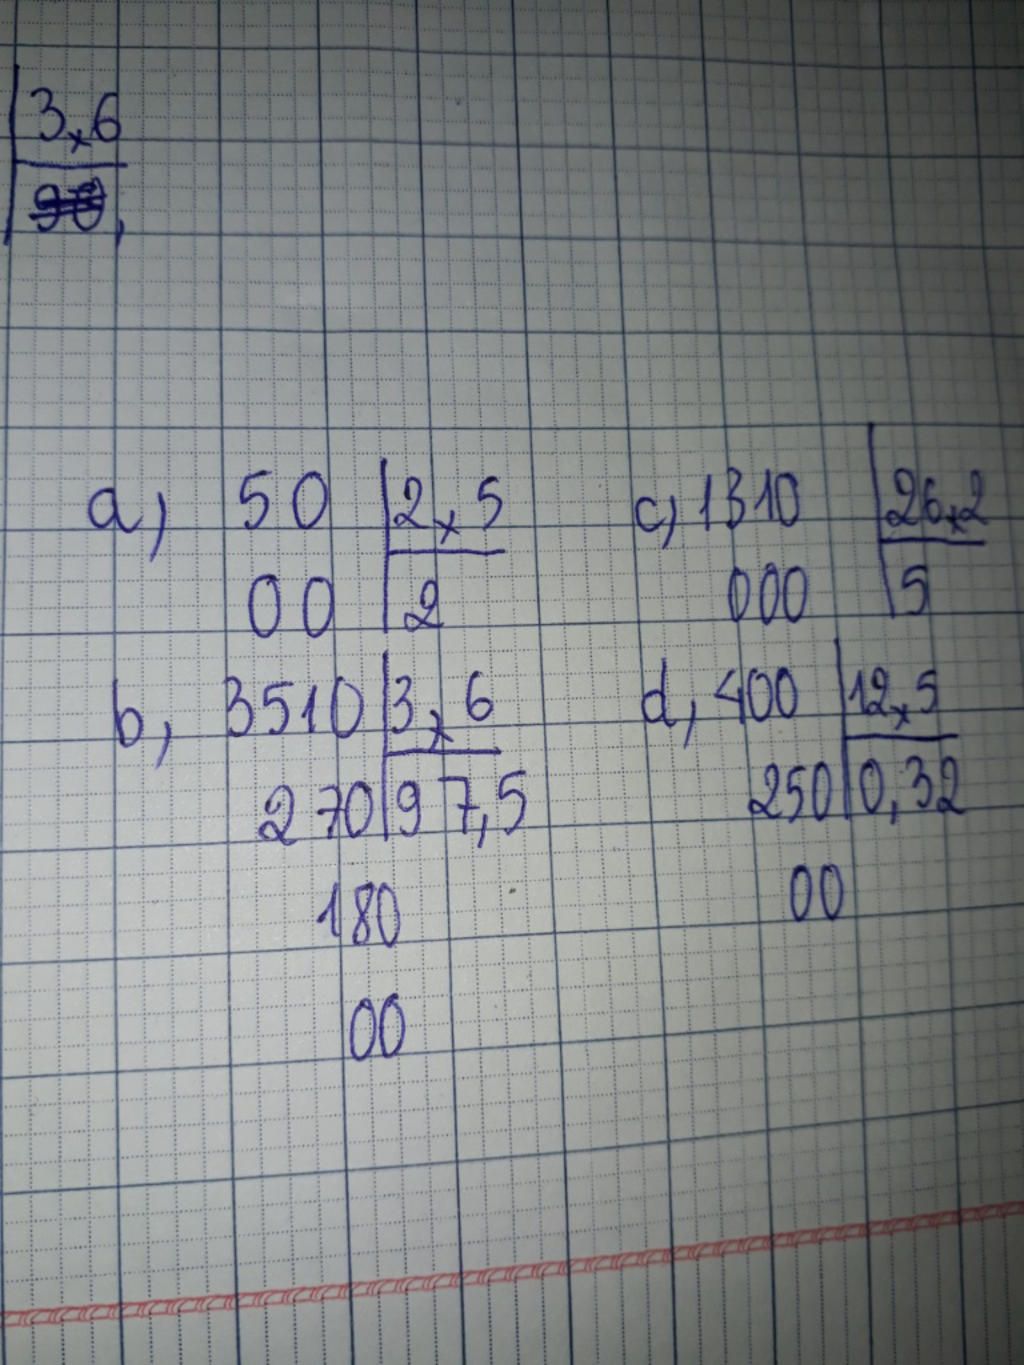 3,6
a, 50 2,5
00 2
b, 3510 3,6
270 97,5
180
00
c, 1310 26,2
000 5
d, 400 12,5
250 0,32
00